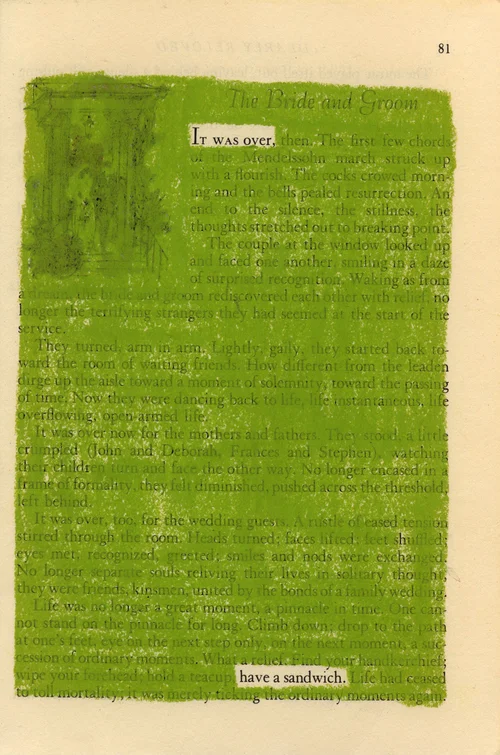 81
The Bride and Groom
IT WAS OVER, then. The first few chords
of the Mendelssohn march struck up
with a flourish. The cocks crowed morn-
ing and the bells pealed resurrection. An
end to the silence, the stillness, the
thoughts stretched out to breaking point.
The couple at the window looked up
and faced one another, smiling in a daze
of surprised recognition. Waking as from
a dream, the bride and groom rediscovered each other with relief, no
longer the terrifying strangers they had seemed at the start of the
service.
They turned, arm in arm. Lightly, gaily, they started back to-
ward the room of waiting friends. How different from the leaden
dirge up the aisle toward a moment of solemnity, toward the passing
of time. Now they were dancing back to life, life instantaneous, life
overflowing, open-armed life.
It was over now for the mothers and fathers. They stood, a little
crumpled (John and Deborah, Frances and Stephen), watching
their children turn and face the other way. No longer encased in a
frame of formality, they felt diminished, pushed across the threshold,
left behind.
It was over, too, for the wedding guests. A rustle of eased tension
stirred through the room. Heads turned; faces lifted, feet shuffled;
eyes met, recognized, greeted; smiles and nods were exchanged.
No longer separate souls reliving their lives in solitary thought,
they were friends, kinsmen, united by the bonds of a family wedding.
Life was no longer a great moment, a pinnacle in time. One can-
not stand on the pinnacle for long. Climb down; drop to the path
at one's feet, eye on the next step only, on the next moment, a suc-
cession of ordinary moments. What a relief. Find your handkerchief;
wipe your forehead; hold a teacup, have a sandwich. Life had ceased
to toll mortality; it was merely ticking the ordinary moments again.